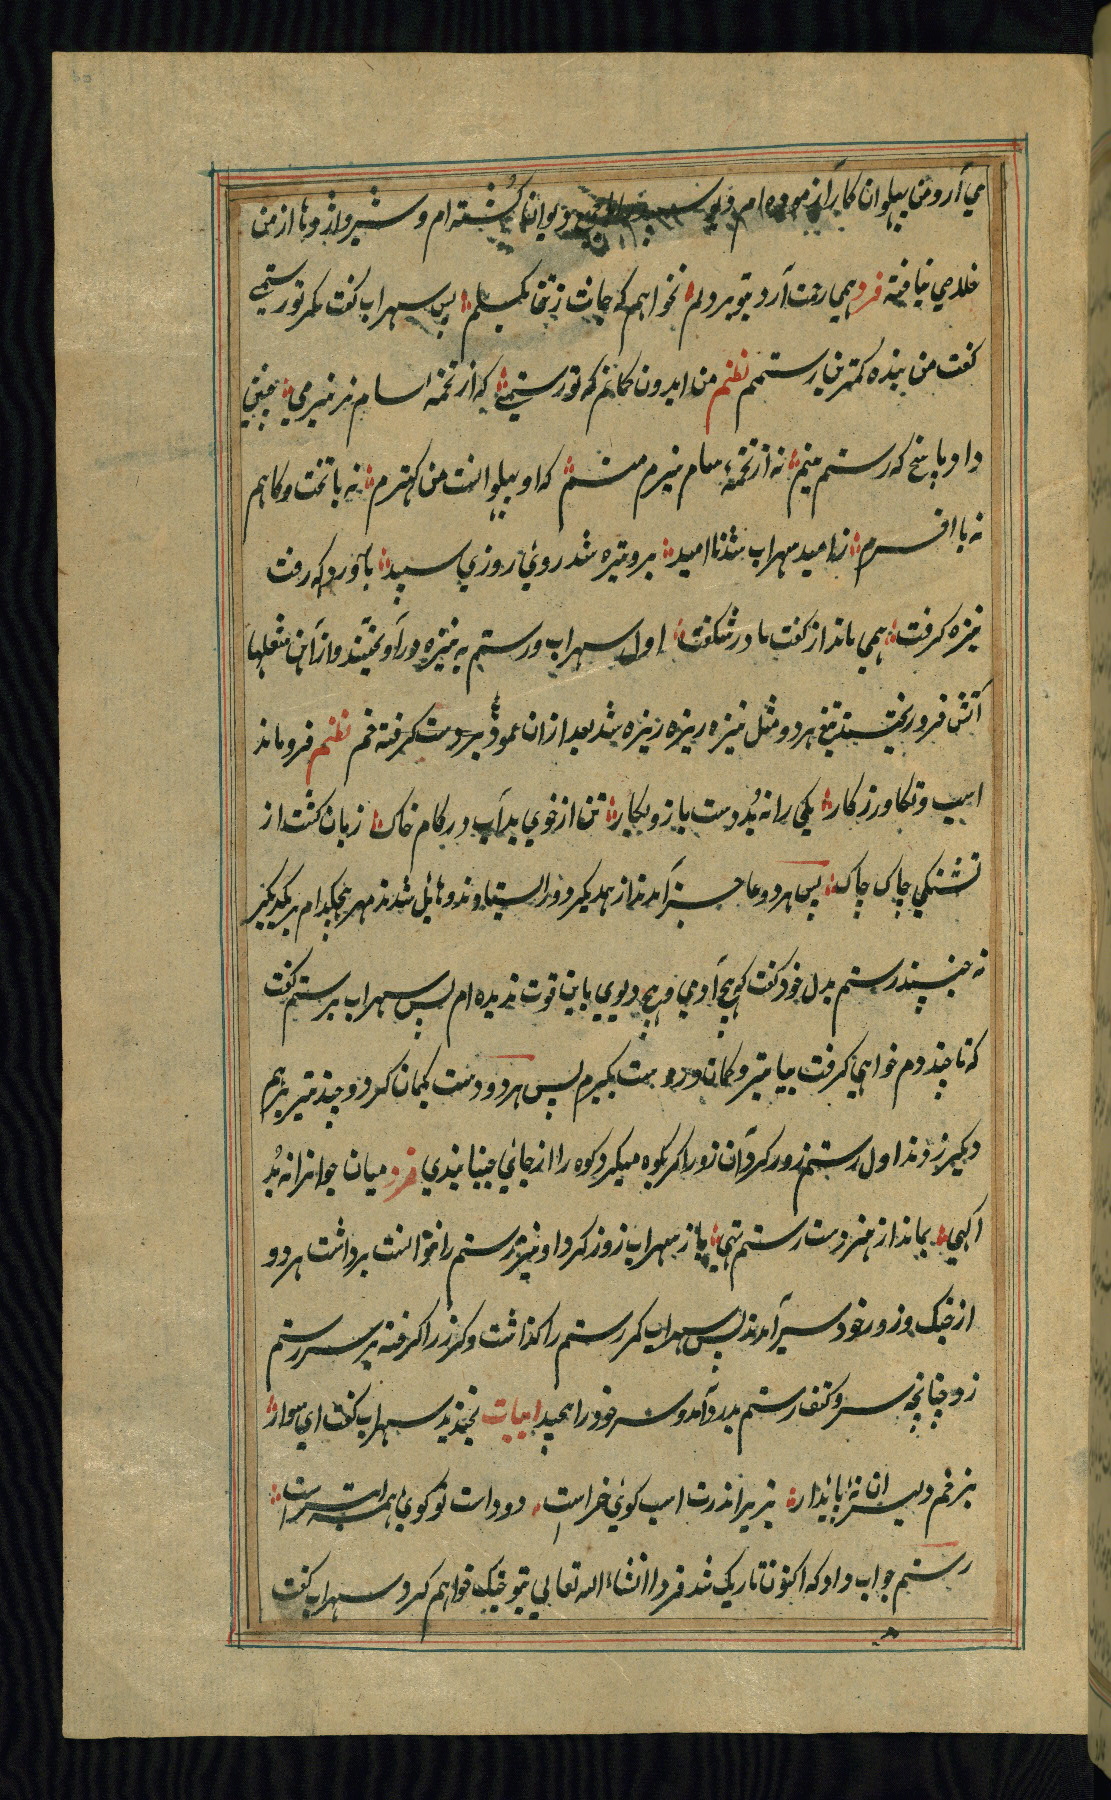 مي آرد من پهلوان کارآزموده ام و دیوانرا کشته ام و شیر و اژدها از من
خلاصي نیافته فرد همي رحمت آرد بتو بر دلم نخواهم که جانت ز تن بکسلم پس سهراب کفت مکر تو رستمي
کفت من بنده کمترین رستمم نظم من ایدون کمانم که تو رستمي که از تخمهٔ سام نیرمي چنین
داد پاسخ که رستم نیم نه از تخمهٔ سام نیرم منم که او پهلوانست من کهترم نه با تخت و کاهم
نه با افسرم ز امید سهراب شد ناامید برو تیره شد روي روز سپید باورد که رفت
نیزه کرفت همي ماند از کفت مادر شکفت اول سهراب و رستم به نیزه درآویختند و از آهن شعلها
آتش فرو ریخت تیغ هر دو مثل نیزه ریزه ریزه شد بعد ازان عمود بردست کرفته خم نظم فرو ماند
اسپ و تکاور ز کار یکي را نه بُد دست بازو بکار تن از خوي پر آب و در کام خاک زبان کشت از
تشنکي چاک چاک پس هر دو عاجز آمدند از همدیکر دور ایستادند و مایل شدند مهر هیچکدام بر یکدیکر
نه جنبید رستم بدل خود کفت که هیچ آدمي و هیچ دیوي باین قوت ندیده ام پس سهراب برستم کفت
که تا چند دم خواهي کرفت بیا تیر و کمان در دست بکیرم پس هر دو دست بکمان کرد و چند تیر برهم
دیکر زدند اول رستم زور کرد آن زور اکر بکوه میکرد کوه را از جاي جنبانیدي فرد میان جوانرا نه بُد
اکهي بماند از هنر دست رستم تهي باز سهراب زور کرد او نیز رستم را نتوانست برداشت هر دو
از جنک و زور خود سیر آمدند پس سهراب کمر رستم را کذاشت و کرز را کرفته بر سر رستم
زد چنانچه سر و کتف رستم بدرد آمد و سر خود را بپیچید ابیات بخندید سهراب کفت اي سوار
بزخم دلیران نهٔ پایدار بزیر اندرت اسپ کوئي خراست دو دست تو کوي همه ابتر است
رستم جواب داد که اکنون تاریک شد فردا انشاءالله تعالي بتو جنک خواهم کرد سهراب کفت